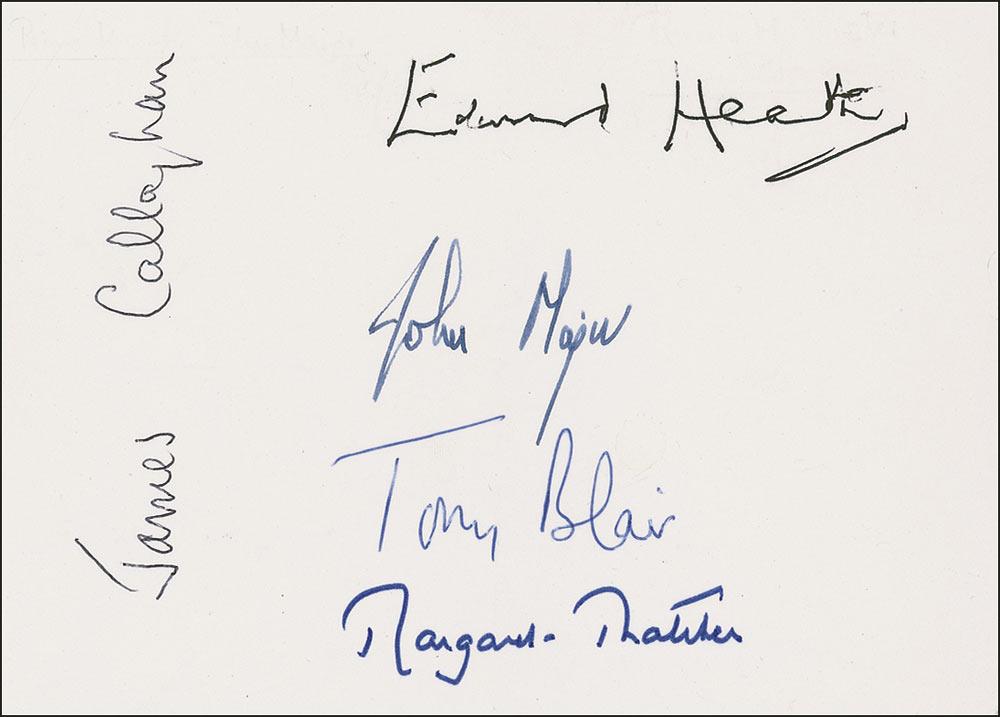 Edward Heath
John Major
Tony Blair
Margaret Thatcher
James Callaghan